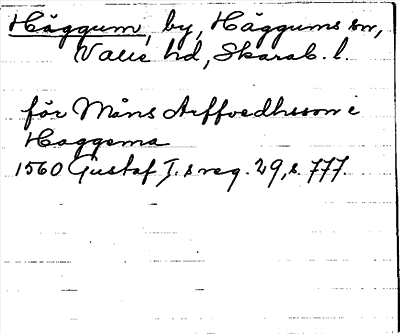 Häggum, by, Häggums sn,
Valle hd, Skarab. l.
för Måns Arffvedhsson i
Haggema
1560 Gustaf I. s reg. 29, s. 777.